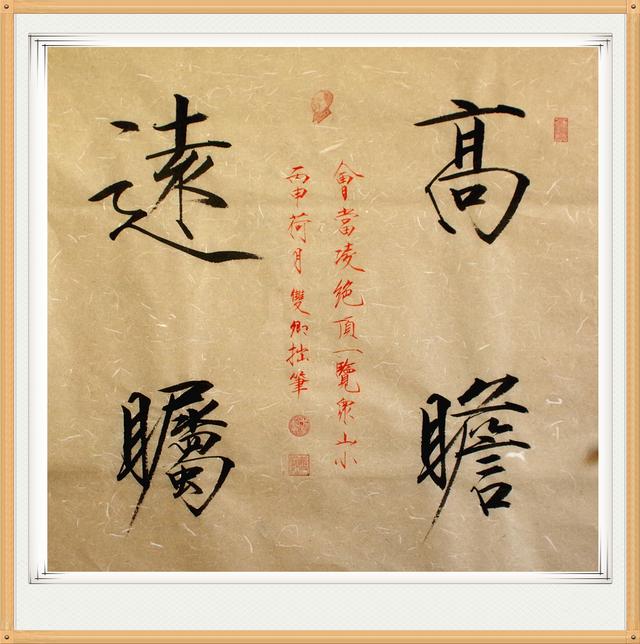 高瞻
遠矚
會當凌絶頂一覽衆山小
丙申荷月雙卿拙筆